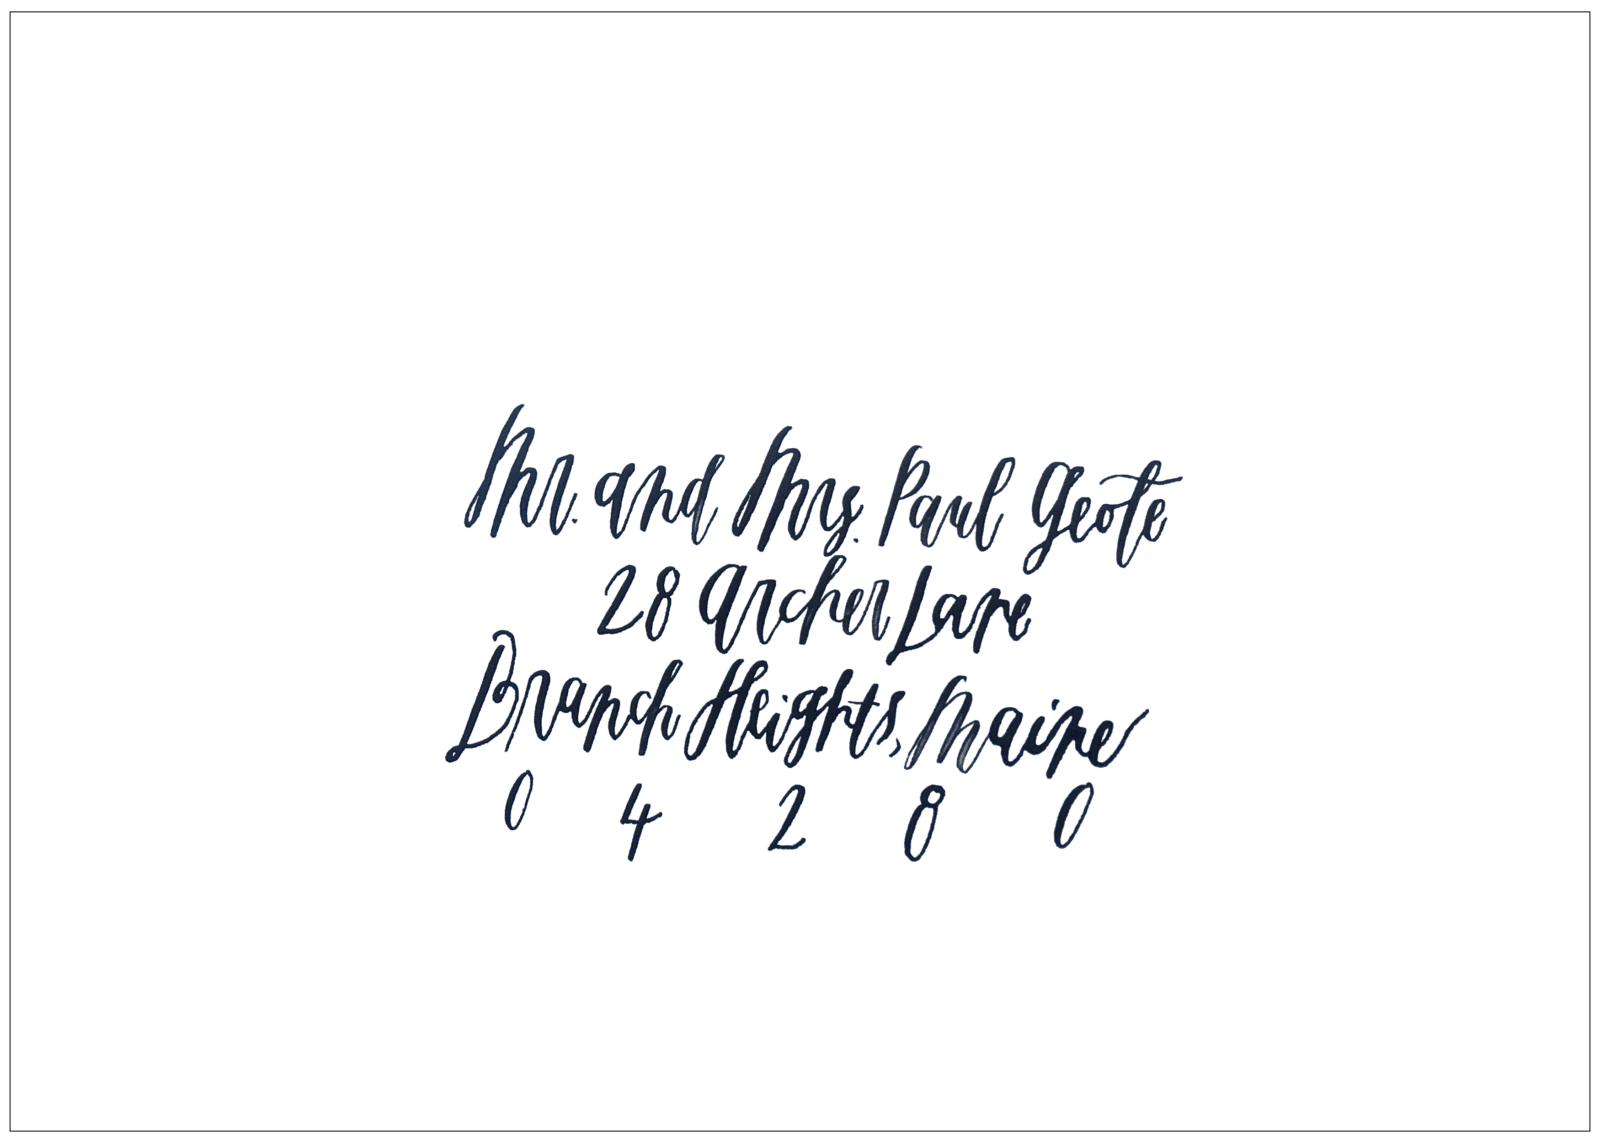 Mr. and Mrs. Paul Geote
28 Archer Lane
Branch Heights, Maine
0 4 2 8 0